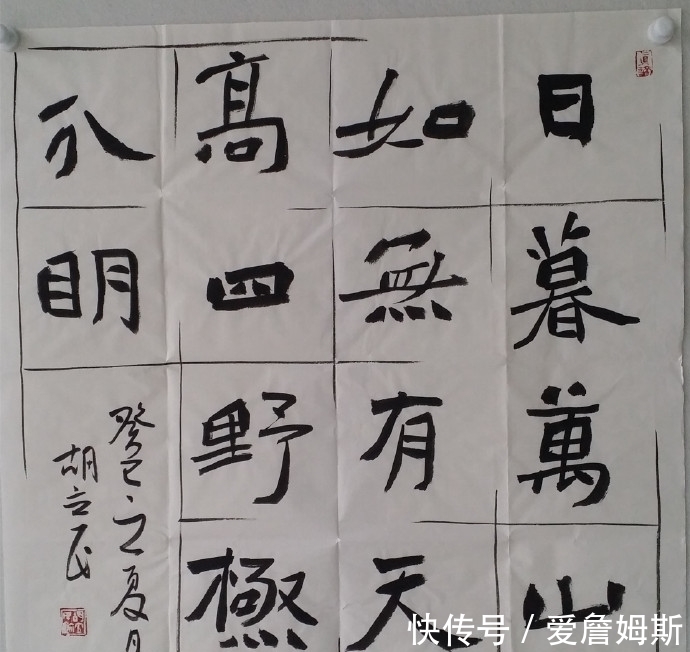 日暮萬山
如無有天
高四野極
分明
癸巳之夏月
胡立民
快传号 / 爱詹姆斯